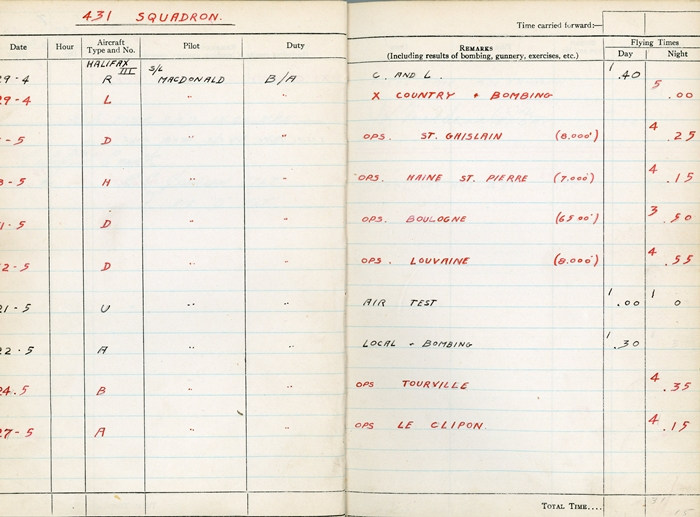 431 SQUADRON.
Time carried forward:—
Date Hour Aircraft Type and No. Pilot Duty REMARKS (Including results of bombing, gunnery, exercises, etc.) Flying Times Day Night
HALIFAX III S/L
29-4 R MACDONALD B/A C. AND L. 1.40
29-4 L " " X COUNTRY + BOMBING 5.00
-5 D " " OPS. ST. GHISLAIN (8,000') 4.25
8-5 H " " OPS. HAINE ST. PIERRE (7,000') 4.15
1-5 D " " OPS. BOULOGNE (6500') 3.50
2-5 D " " OPS. LOUVAINE (8,000') 4.55
21-5 U " " AIR TEST 1.00 1 0
22.5 A " " LOCAL - BOMBING 1.30
24.5 B " " OPS TOURVILLE 4.35
27-5 A " " OPS LE CLIPON. 4.15
TOTAL TIME....